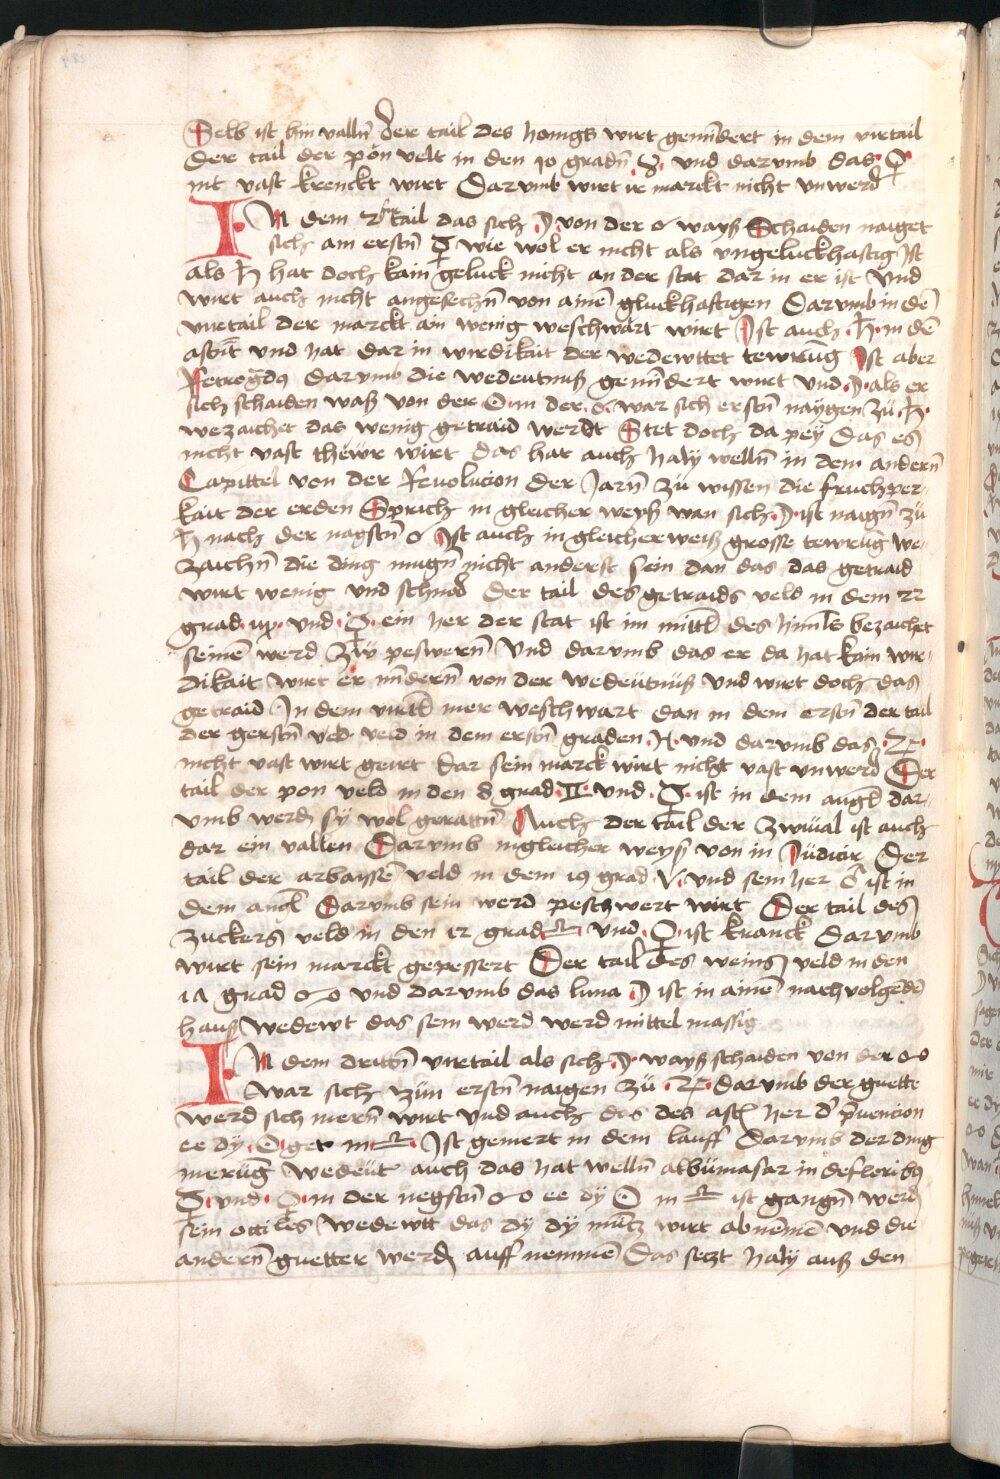 Selb ist hin valln̄ der tail des honigs wirt gemīdert in dem urtail
der tail der pon velt in den 10 gradn̄ ♉ und darumb das ♀
nit vast krenckt wirt Darumb wirt ir marckt nicht unwerd
IN dem 2 tail das sich ☽ von der ☍ wayß Schaiden naiget
sich am erstn̄ ☿ wie wol er nicht als ungeluckhafftig ist
als ♄ hat doch kain geluck nicht an der stat dar in er ist Und
wirt auch nicht angesechn̄ von ainē gluckhafftigen Darumb in dē
urtail der marckt ain wenig weschwart wirt Ist auch ♄ in dē
und hat dar in wirdikait der wedewttet tewrūg Ist aber
darumb die wedeutnuß gemīdert wirt und ☽ als er
sich schaiden waß von der ☉ in der ☍ war sich erstn̄ naygen zu ♄
wezaichet das wenig getraid werdt Stet doch da pey das es
nicht vast thewr wirt das hat auch haly welln̄ in dem andern̄
Capittel von der Reuolucion der Jarn̄ zu wissen die fruchper-
kait der erden Sprich in gleicher weyß wan sich ☽ ist naign̄ zu
♄ nach der nagstn̄ ☍ Ist auch in gleicher weiß grosse tewrūg we-
zaichn̄ die ding mugn̄ nicht anderst sein dan das das getraid
wirt wenig und schnod der tail des getraids veld in dem 22
grad ♍ und ☿ ein her der stat ist im mittl des himls bezaichet
seinē werd zw peswern̄ Und darumb das er da hat kain wir-
dikait wirt er mīdern̄ von der wedeutnuß und wirt doch das
getraid In dem urtl mer weschwart dan in dem erstn̄ der tail
der gerstn̄ veld in dem erstn̄ graden ♓ und darumb das ♃
nicht vast wirt geirt dar sein marck wirt nicht vast unwerd Der
tail der pon veld in den 8 grad ♊ und ☿ ist in dem angl̄ dar-
umb werd sy wol geratn̄ Auch der tail der zwiual ist auch
dar ein vallen Darumb in gleicher weyß von in Judicir Der
tail der arbaissē veld in dem 19 grad ♈ und sein her ♂ ist in
dem angl̄ Darumb sein werd peschwert wirt Der tail des
zuckers veld in den 12 grad ♎ und ♀ ist kranck Darumb
wirt sein marckt gepessert Der tail des weins veld in den
grad ♋ und darumb das luna ☽ ist in ainē nachvolgēdē
hauß wedewt das sein werd werd mittel massig
IN dem drittn̄ urtail als sich ☽ wayß schaiden von der ☍
war sich zum erstn̄ naigen zu ♃ darumb der guette
werd sich mern̄ wirt und auch das des asc̄ her d' p̄uencion
ee dy ☉ get in ♎ Ist gemert in dem lauff Darumb der ding
merūg wedeut auch das hat welln̄ albumasar in de floribus
☿ und ♀ in der negstn̄ ☍ ee dy ☉ in ♎ ist gangn̄ werd
sein wedewtt das dy dy mūtz wirt abnemē und die
andern̄ guetter werd auff nemmē Das setzt haly auß den